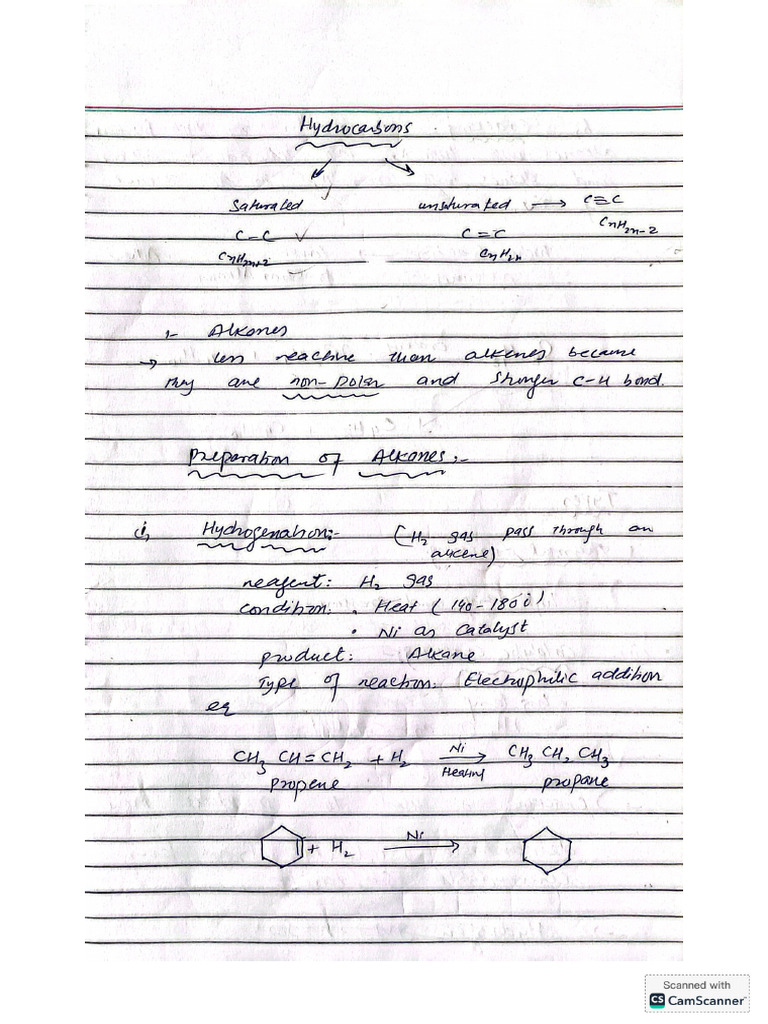 Hydrocarbons
Saturated unsaturated → C≡C
C-C C=C CnH2n-2
CnH2n+2 CnH2n
1- Alkanes
→ less reactive than alkenes because
they are non-polar and stronger C-H bond.
Preparation of Alkanes:-
i, Hydrogenation:- (H2 gas pass through an
alkene)
reagent: H2 gas
condition: • Heat (140-180°C)
• Ni as catalyst
product: Alkane
Type of reaction: Electrophilic addition
eq
CH3 CH=CH2 + H2 Ni Heating → CH3 CH2 CH3
propene propane
+ H2 Ni →
Scanned with
CS CamScanner